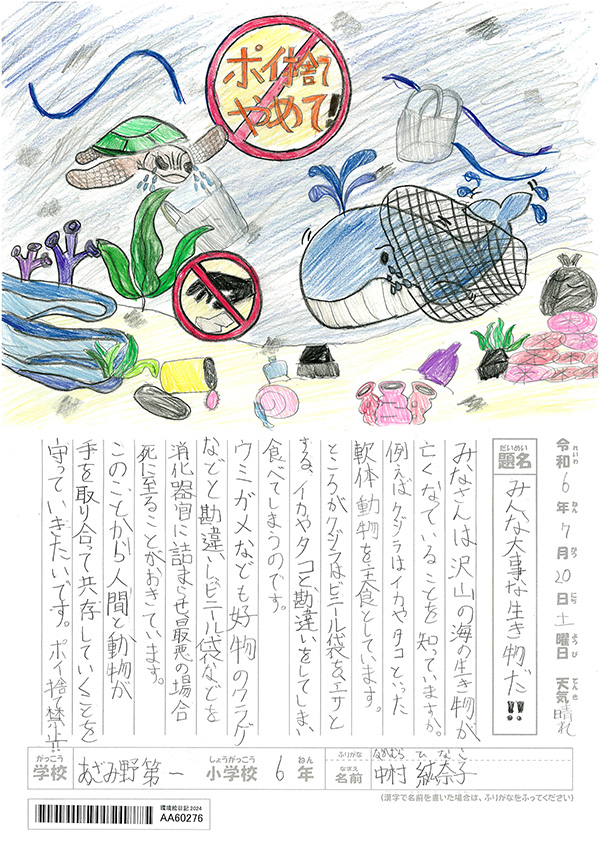 ポイ捨て
やめて!
令和6年7月20日土曜日 天気晴れ
れいわ ねん がつ にち ようび てんき
題名 みんな大事な生き物だ!!
だいめい
みなさんは沢山の海の生き物が
亡くなっていることを知っていますか。
例えばクジラはイカやタコといった
軟体動物を主食としています。
ところがクジラはビニール袋をエサと
する、イカやタコと勘違いをしてしまい
食べてしまうのです。
ウミガメなども好物のクラゲ
などと勘違いし、ビニール袋などを
消化器官に詰まらせ最悪の場合
死に至ることがおきています。
このことから人間と動物が
手を取り合って共存していくことを
守っていきたいです。ポイ捨て禁止!!
がっこう しょうがっこう ねん
学校 あざみ野第一 小学校 6年
ふりがな なかむら ひなこ
なまえ
名前 中村 紘奈子
(漢字で名前を書いた場合は、ふりがなをふってください)
環境絵日記2024
AA60276